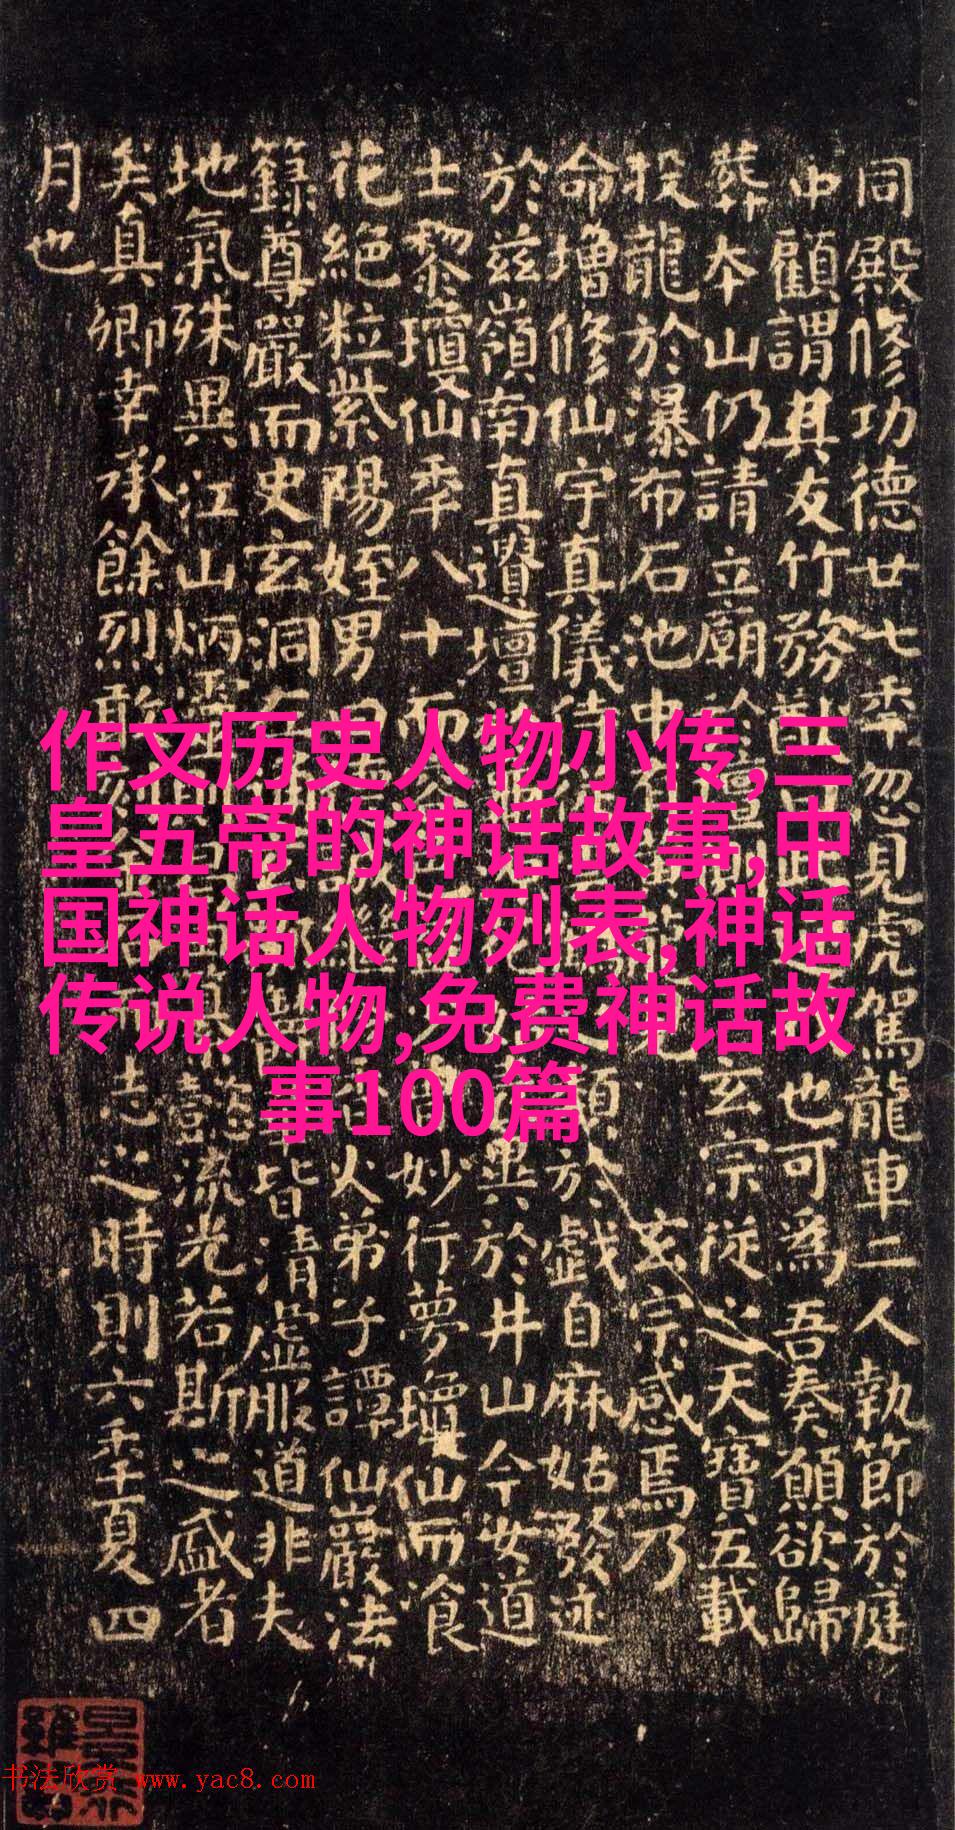 同殿修功德廿七年忽見虎駕龍車二人執節於庭
中顧謂其友竹務猷曰此也可為吾奏願欲歸
葬本山仍請立廟於壇側玄宗從之天寶五載
投龍於瀑布石池中龍見玄宗感焉乃
命增修仙宇真儀侍從之類於戲自麻姑發迹
於茲嶺南真遺壇異於井山今女道
士黎瓊仙年八十而容妙行夢瓊仙而飡
花絕粒紫陽姪男曰誠繼火弟子譚仙巖法
籙尊嚴而史玄洞左皆清虛服道非夫
地氣殊異江山炳靈纂懿流光若斯之盛者
矣真卿幸承餘烈敢志之時則六年夏四
月也
作文历史人物小传,三
皇五帝的神话故事,中
国神话人物列表,神话
传说人物,免费神话故
事100篇
书法欣赏 www.yac8.com